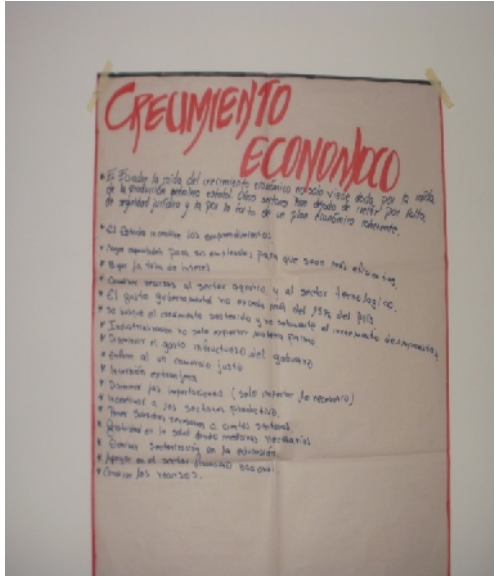 CRECIMIENTO
ECONOMICO
* El Ecuador la caida del crecimiento económico no solo viene dada por la caida
de la producción petrolera estatal. Otros sectores han dejado de crecer por falta
de seguridad juridica y la por la falta de un plan económico coherente.
* El Estado incentive los emprendimientos
* Mayor capacitación para sus empleados para que sean más eficientes
* Bajar la tasa de interes
* Canalizar recursos al sector agrario y al sector tecnologico.
* El gasto gubernamental no exceda más del 25% del PIB
* Se busque el crecimiento sostenido y no solamente el incremento de
* Industrializarnos no solo exportar materia prima
* Disminuir el gasto del gobierno
* al un comercio justo
* Inversión extranjera
* Disminuir las importaciones (solo importar lo necesario)
* Incentivar a los sectores productivos.
* Poner necesarios a ciertos sectores
* en la salud dando medicinas necesarias
* en la educación.
* Apoyar en el sector financiero
* los recursos.